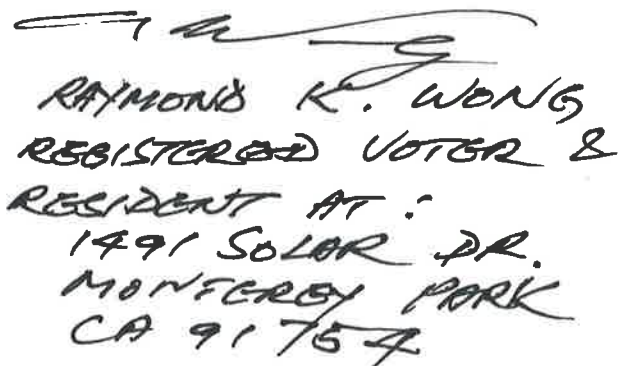 RAYMOND K. WONG
REGISTERED VOTER &
RESIDENT AT :
1491 SOLAR DR.
MONTEREY PARK
CA 91754